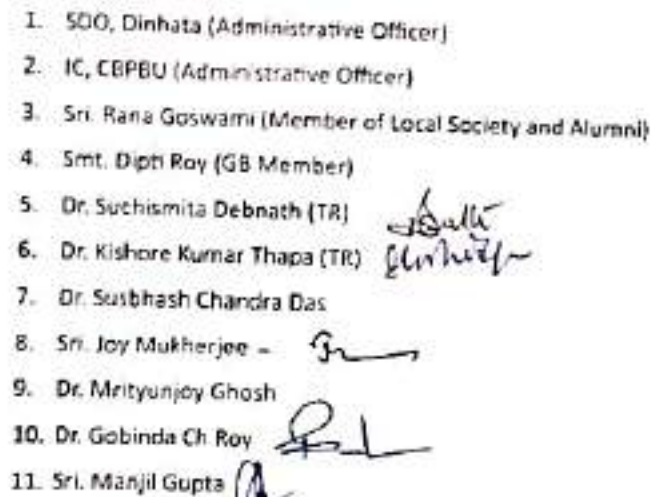 1. SDO, Dinhata (Administrative Officer)
2. IC, CBPBU (Administrative Officer)
3. Sri. Rana Goswami (Member of Local Society and Alumni)
4. Smt. Dipti Roy (GB Member)
5. Dr. Suchismita Debnath (TR)
6. Dr. Kishore Kumar Thapa (TR)
7. Dr. Susbhash Chandra Das
8. Sri. Joy Mukherjee -
9. Dr. Mrityunjoy Ghosh
10. Dr. Gobinda Ch Roy
11. Sri. Manjil Gupta